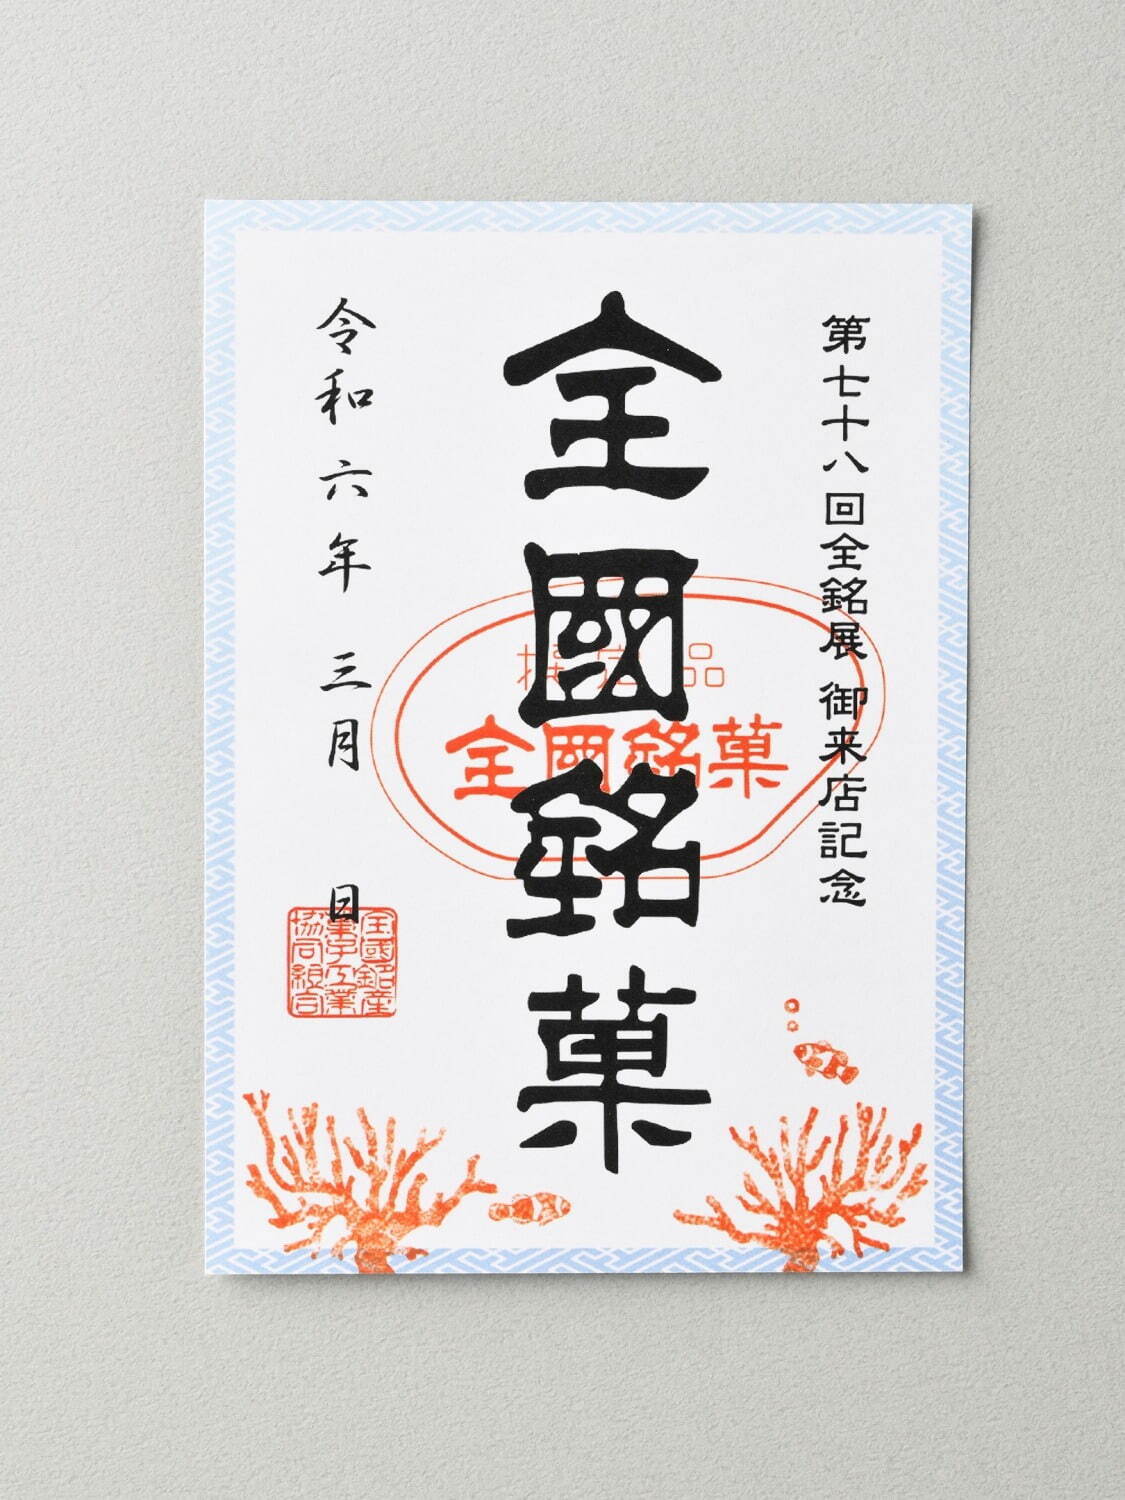 第七十八回全銘展 御来店記念
全國銘菓
撰定品
全國銘菓
令和六年 三月 日
全國銘産
菓子工業
協同組合